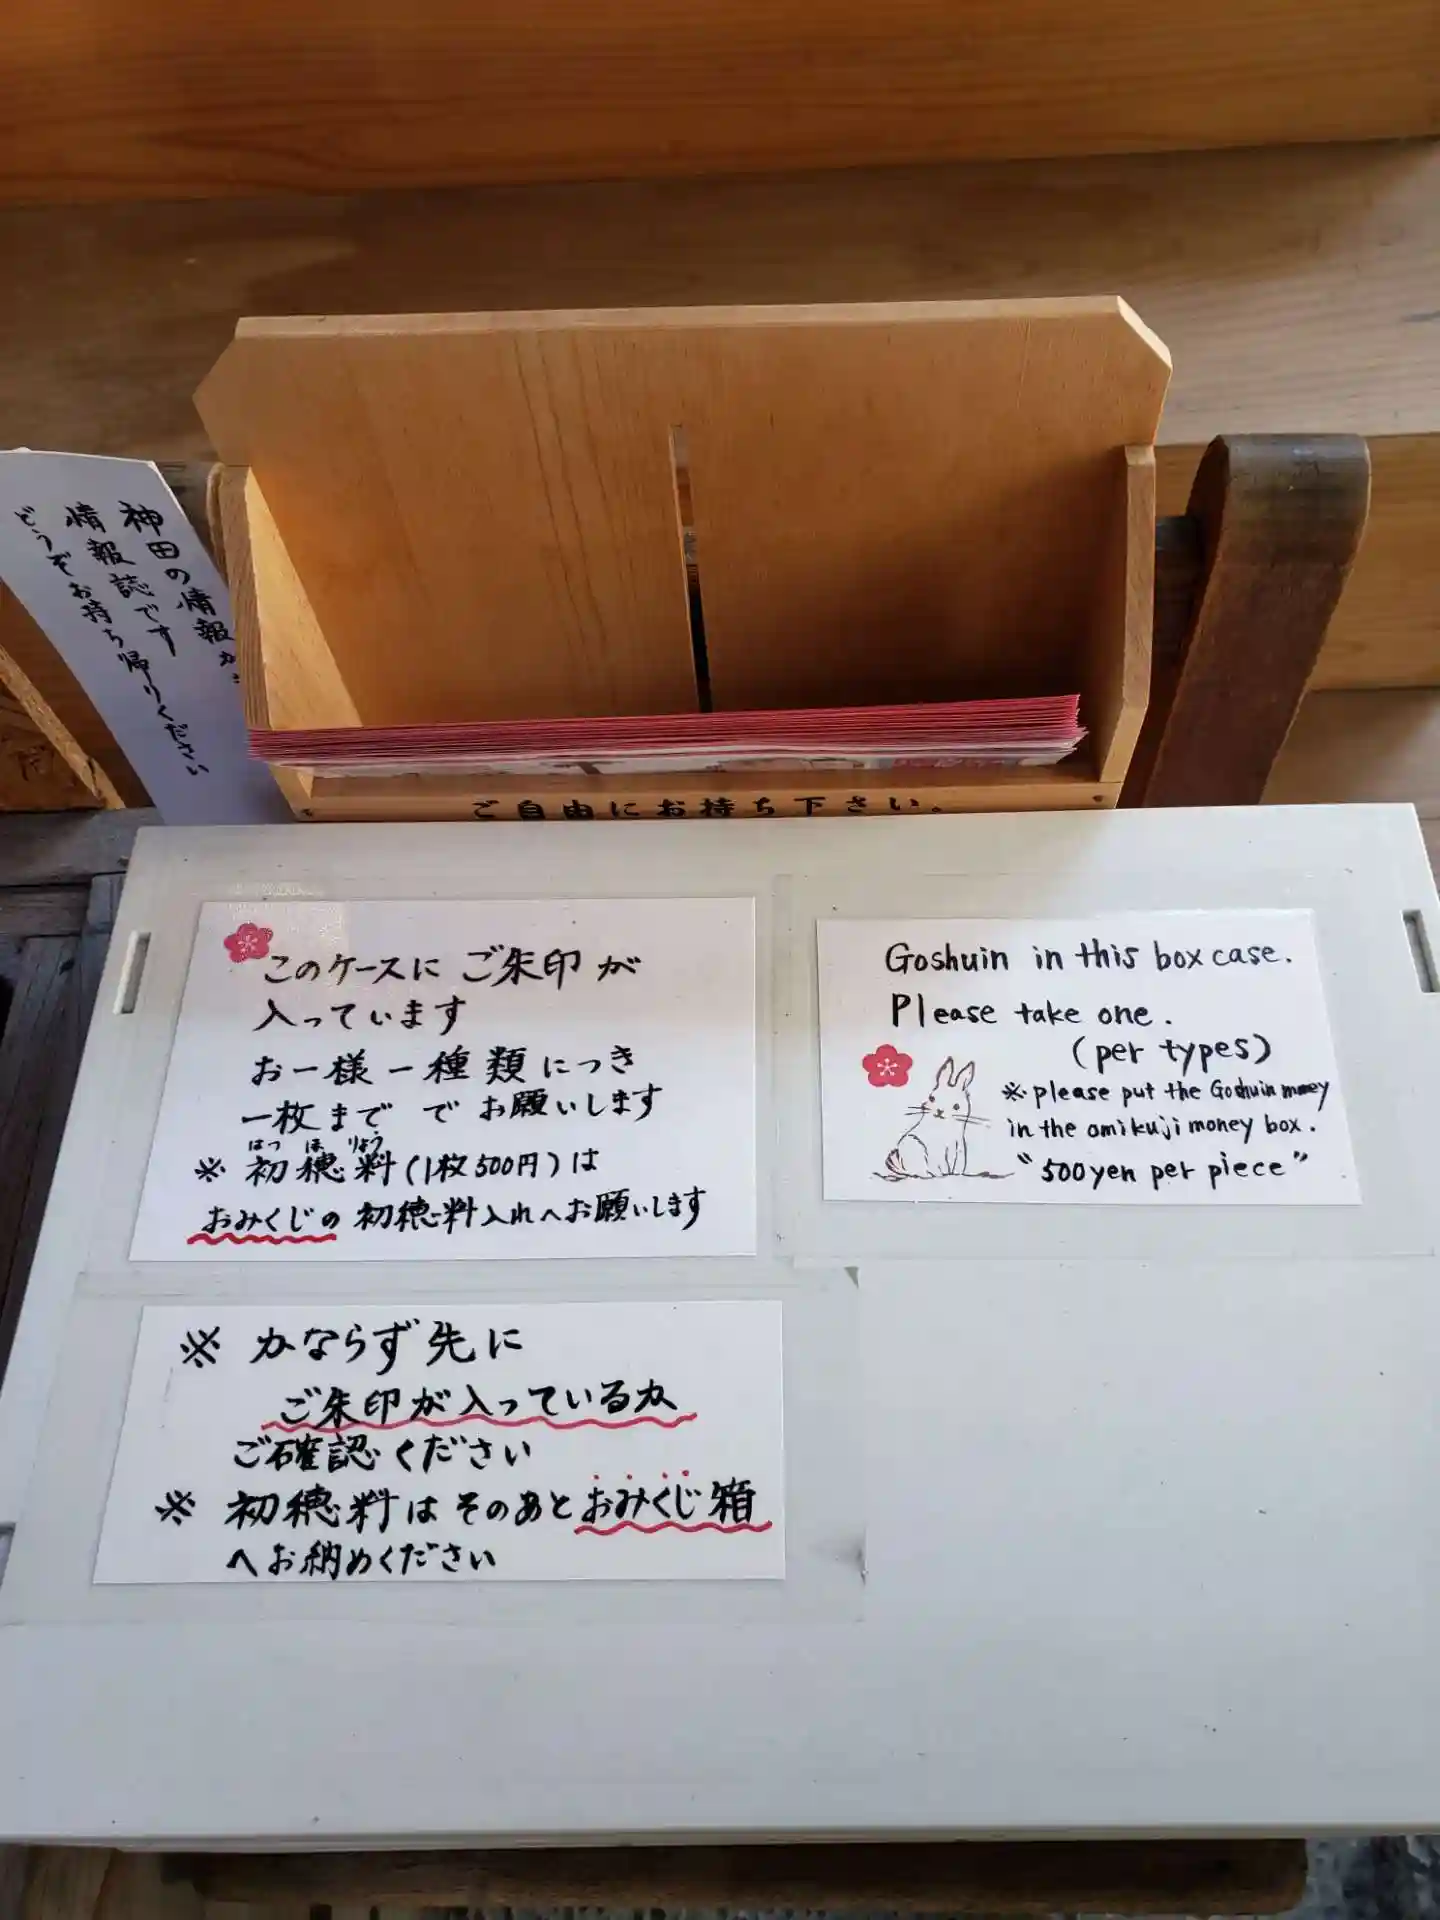 神田の情報が
情報誌です
どうぞお持ち帰りください
ご自由にお持ち下さい。
このケースにご朱印が
入っています
お一様一種類につき
一枚まででお願いします
はつほりょう
※初穂料(1枚500円)は
おみくじの初穂料入れへお願いします
Goshuin in this box case.
Please take one.
(per types)
※please put the Goshuin money
in the omikuji money box.
"500yen per piece"
※かならず先に
ご朱印が入っているか
ご確認ください
※初穂料はそのあとおみくじ箱
へお納めください